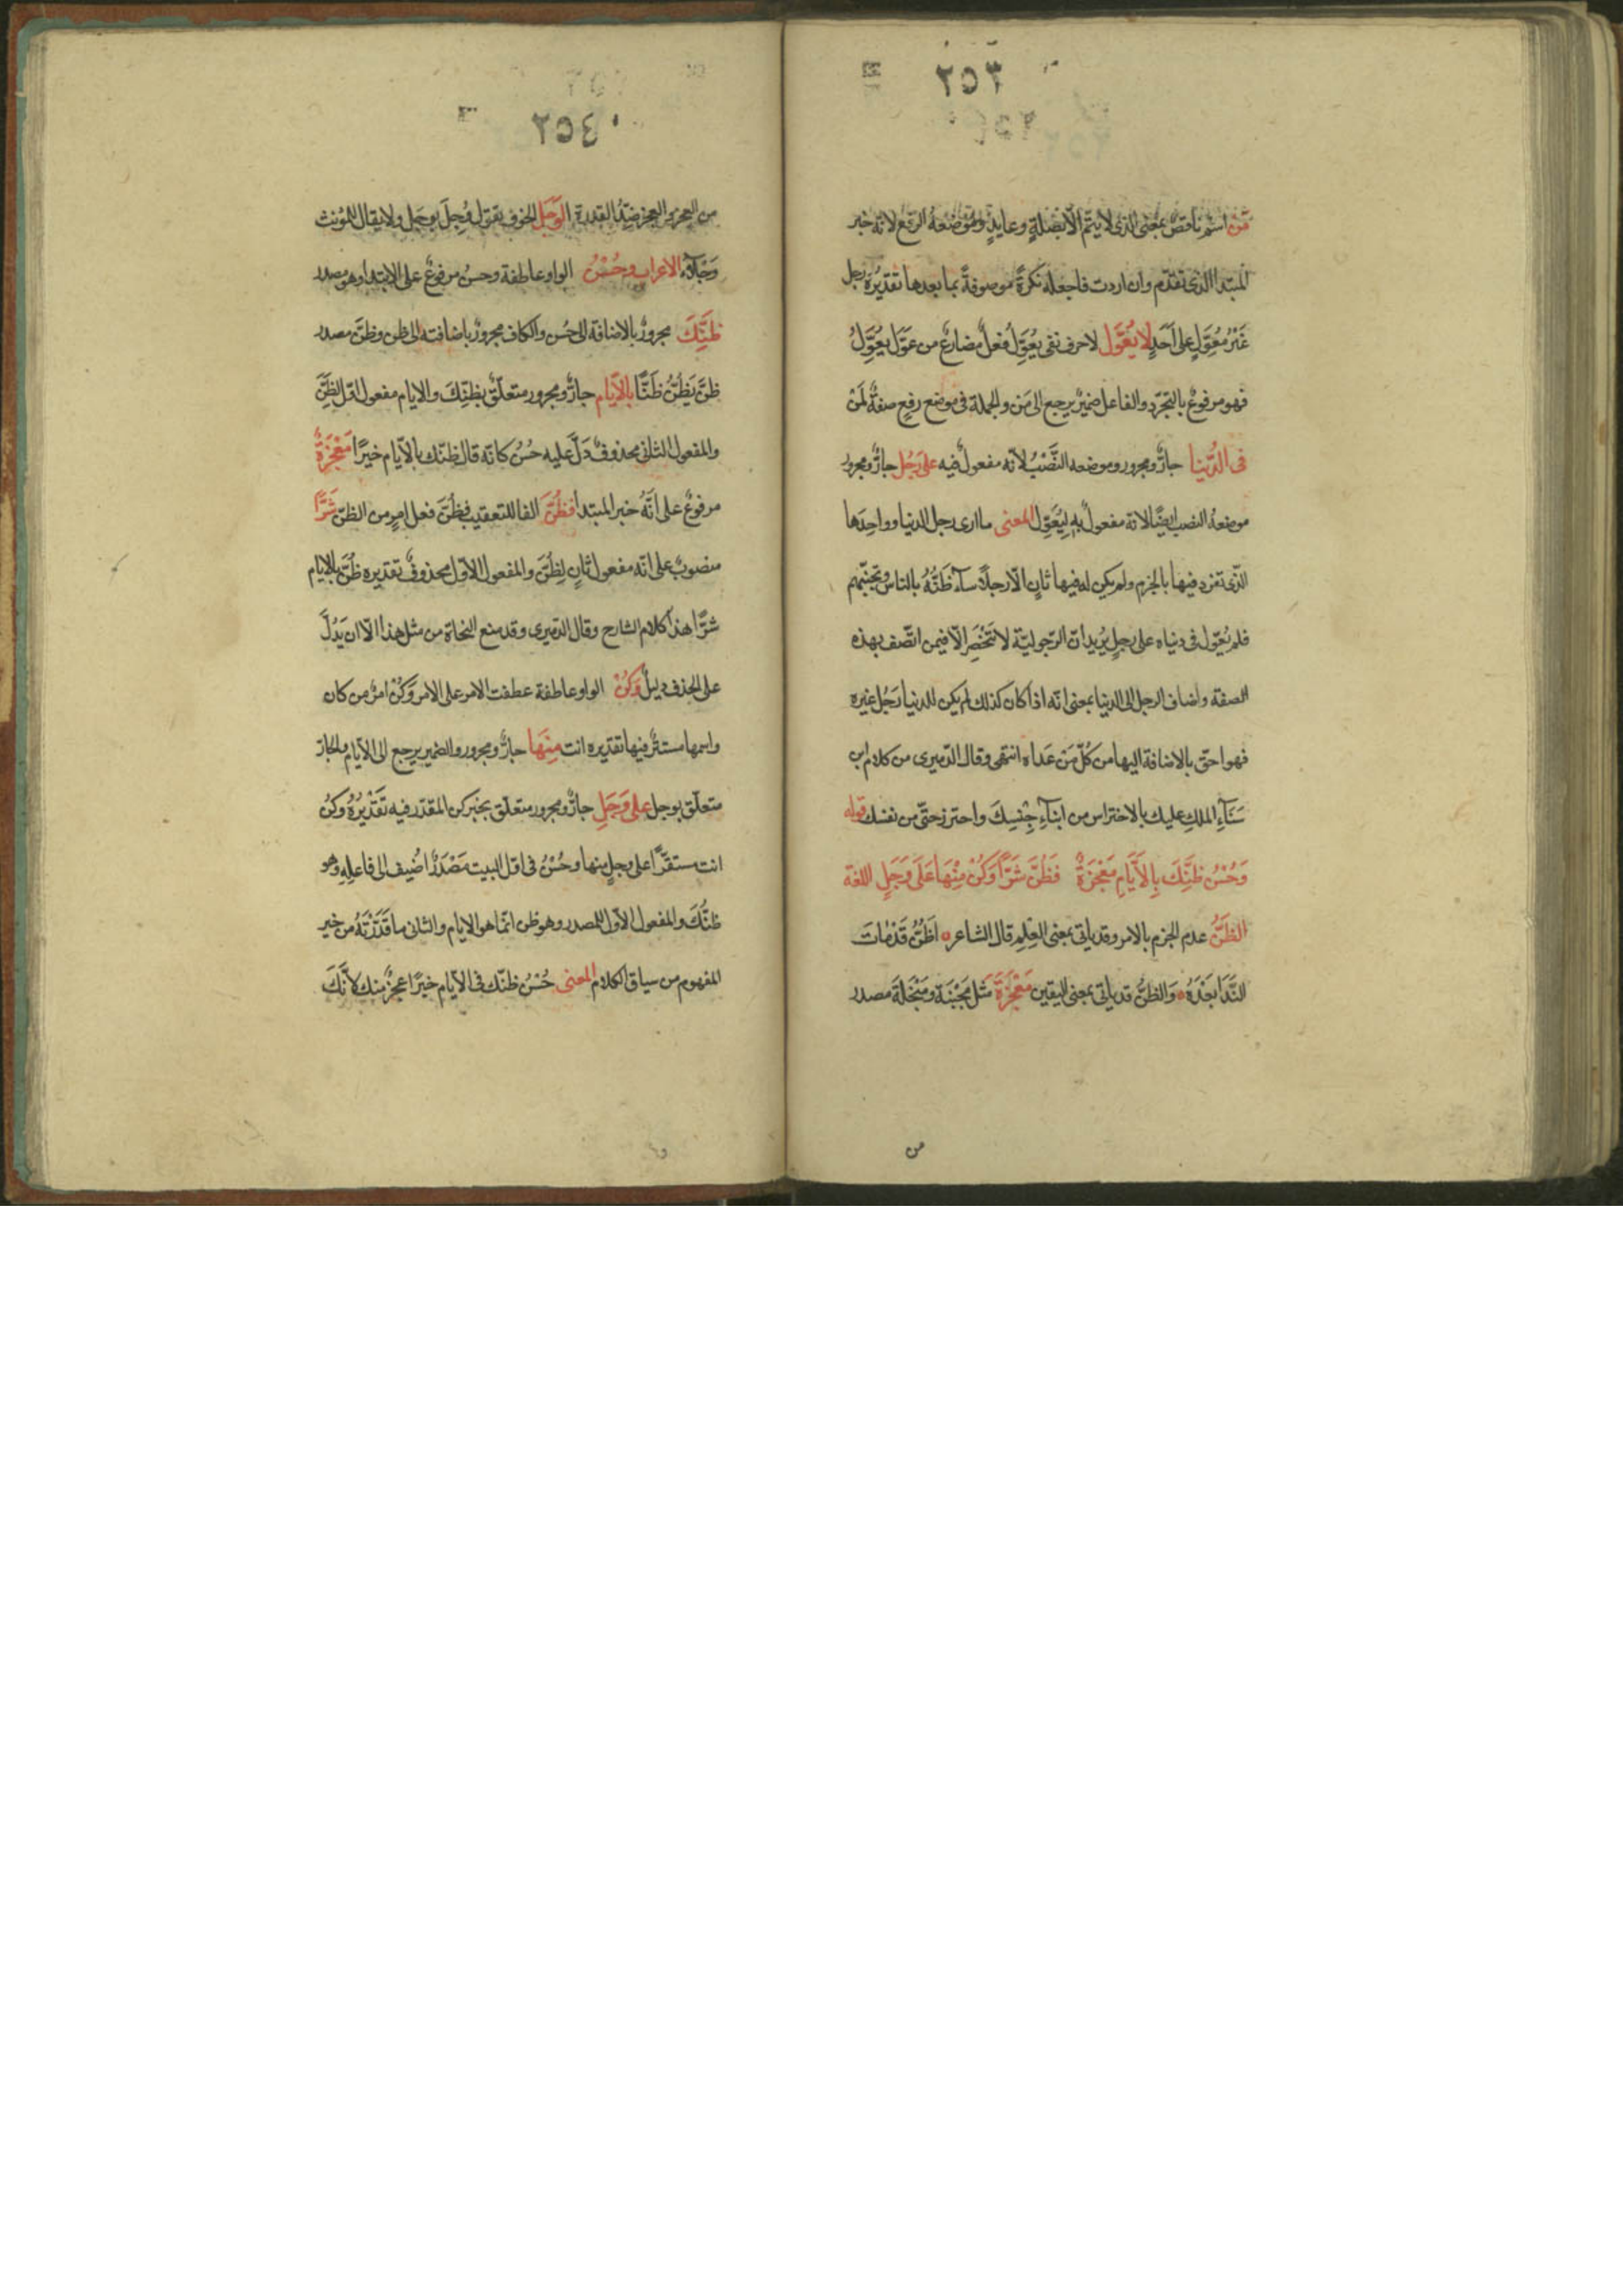 ٢٥٣
مَنْ اسْم ناقصٌ بمعنى الذى لا يتمّ الّا بصلةٍ وعايدٍ وموْضعهُ الرّفع لانّه خبر
المبتدا الذى تقدّم وان اردت فاجعله نكرةً موصوفةً بما بعدها تقديرُهُ رجل
غَيْرُ مُعَوِّلٍ على اَحَدٍ لا يُعَوِّلُ لا حرف نفى يُعَوِّلُ فعلٌ مضارعٌ من عَوَّلَ يُعَوِّلُ
فهو مرفوعٌ بالتجرّد والفاعل ضميرٌ يرجع الى مَن والجملة فى موضع رفعٍ صفةٌ لمَنْ
فى الدُّنيا جارٌّ ومجرور وموضعه النَّصْبُ لانّه مفعولٌ فيه على رَجُلٍ جارٌّ ومجرور
موضعهُ النصب ايضًا لانّه مفعولٌ بهِ ليُعَوِّلُ المعنى ما ارى رجل الدنيا وواحِدَها
الذّى تفرّد فيها بالحزم ولم يكن له فيها ثانٍ الّا رجلًا سآءَ ظَنُّهُ بالناس وتجنّبهم
فلم يُعَوِّل فى دنياه على رجلٍ يُريد انّ الرّجوليّة لا تَنْحَصِرُ الّا فيمن اتّصف بهذه
الصفة واضاف الرجل الى الدنيا بمعنى انّه اذا كان كذلك لم يكن للدنيا رَجُل غيره
فهو احقّ بالاضافة اليها من كُلّ مَنْ عَداه انتهى وقال الدّميرى من كلام ابن
سَنَآءِ الملكِ عليك بالاحتراس من ابنآءِ جِنْسِكَ واحترز حتّى من نفسك قوله
وَحُسْنُ ظَنِّكَ بِالاَيَّامِ مَعْجَزَةٌ فَظُنَّ شَرًّا وَكُنْ مِنْهَا عَلَى وَجَلِ اللغة
الظَنُّ عدم الجزم بالامر وقد ياتى بمعنى العِلم قال الشاعر ه اَظُنُّ قَدْ مَاتَ
النَّدَا بَعْدَهُ ه وَالظنُّ قد ياتى بمعنى اليقين مَعْجَزَةٌ مَثَل مَجْبَنَة ومَبْخَلَة مصدر
من
٢٥٤
من العجز والعجز ضِدُّ القدرة الوَجَل الخوف يقول وَجِلَ يوجَل ولا يقال للمؤنث
وَجْلَآءُ الاعراب وحُسْنُ الواو عاطفة وحسنُ مرفوعٌ على الابتدا وهو مصدر
ظَنِّكَ مجرورٌ بالاضافة الى حُسْن والكاف مجرورٌ باضافته الى ظن وظنّ مصدر
ظنَّ يَظُنُّ ظَنًّا بالاَيّام جارٌّ ومجرور متعلّق بظنّكَ والايام مفعول اوّل لظنّ
والمفعول الثانى محذوفٌ دَلَّ عليه حسْنُ كانّه قال ظنّك بالاَيّام خيرًا مَعْجَزَةٌ
مرفوعٌ على انَّهُ خبر المبتدا فظُنَّ الفا للتعقيب فظُنَّ فعل امرٍ من الظنّ شَرًّا
منصوبٌ على انّه مفعول ثانٍ لظُنَّ والمفعول الاوّل محذوف تقديره ظُنَّ بالايام
شرًّا هذا كلام الشارح وقال الدّميرى وقد منع النحاة من مثل هذا الّا ان يَدُلّ
على الحذف دليلٌ وَكُنْ الواو عاطفة عطفت الامر على الامر وَكُنْ امرٌ من كان
واسمها مستترٌ فيها تقديره انت مِنْهَا جارٌّ ومجرور والضمير يرجع الى الاَيّام والجارّ
متعلّق بوجل على وَجَلِ جارٌّ ومجرور متعلّق بخبر كن المقدّر فيه تَقْدِيْرُهُ وكنْ
انت مستقرًّا على وجلٍ منها وحُسْنُ فى اوّل البيت مَصْدَرٌ اضُيف الى فاعِلِهِ وهو
ظنُّكَ والمفعول الاوّل للمصدر وهو ظن انّما هو الايام والثانى ما قَدَّرْتَهُ من خير
المفهوم من سياق الكلام المعنى حُسْنُ ظنّك فى الاَيّام خيرًا عجزٌ منك لاَنَّكَ